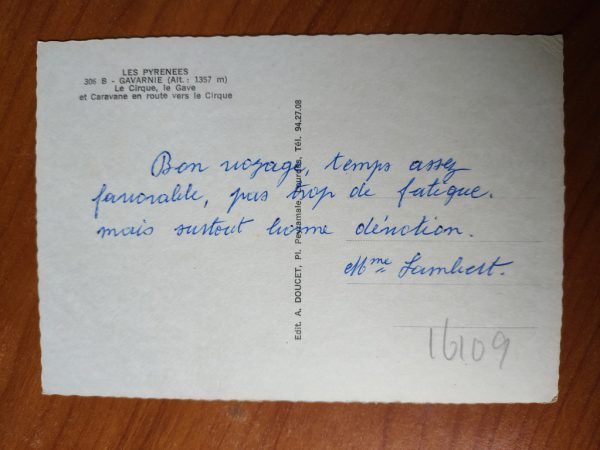 LES PYRENEES
306 B - GAVARNIE (Alt. : 1357 m)
Le Cirque, le Gave
et Caravane en route vers le Cirque
Bon voyage, temps assez
favorable, pas trop de fatigue.
mais surtout bonne dévotion.
Mme Lambert.
Edit. A. DOUCET, Pl. Peyramale, Lourdes, Tél. 94.27.08
16109